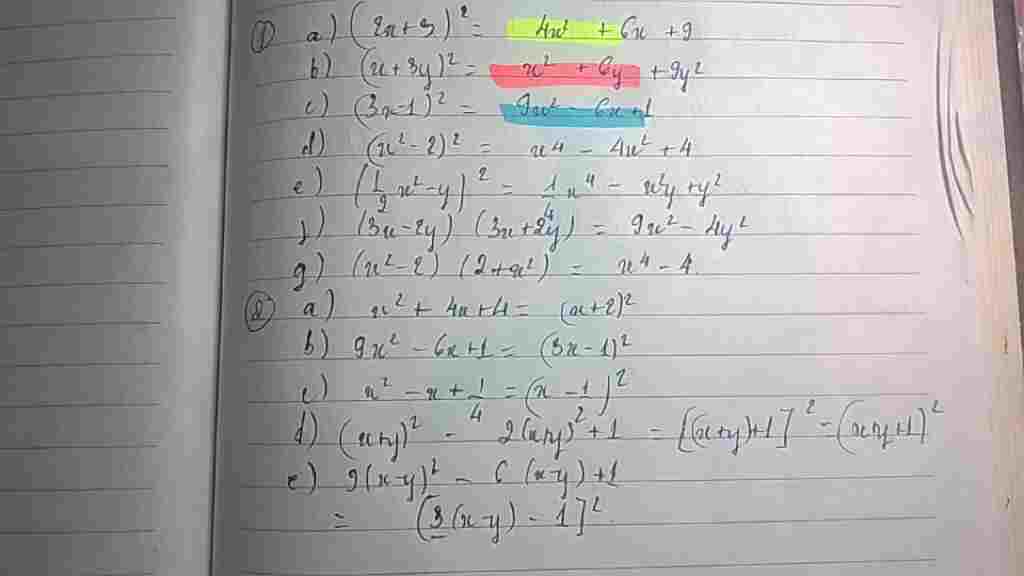 ① a) (2x+3)² = 4x² + 6x + 9
b) (x+3y)² = x² + 6y + 9y²
c) (3x-1)² = 9x² - 6x+1
d) (x²-2)² = x⁴ - 4x² + 4
e) (1/2 x²-y)² = 1/4 x⁴ - x²y + y²
f) (3x-2y) (3x+2y) = 9x² - 4y²
g) (x²-2) (2+x²) = x⁴ - 4
② a) x² + 4x+4 = (x+2)²
b) 9x² - 6x+1 = (3x-1)²
c) x² - x + 1/4 = (x - 1)²
d) (x+y)² - 2(x+y)² + 1 = [(x+y)+1]² = (x+y+1)²
e) 9(x-y)² - 6(x-y)+1
= (3(x-y) - 1]²